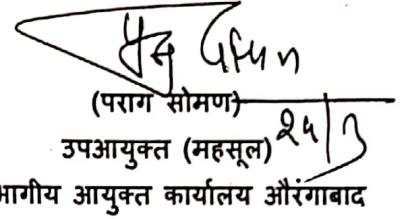 (पराग सोमण)
उपआयुक्त (महसूल) २५/३
भागीय आयुक्त कार्यालय औरंगाबाद